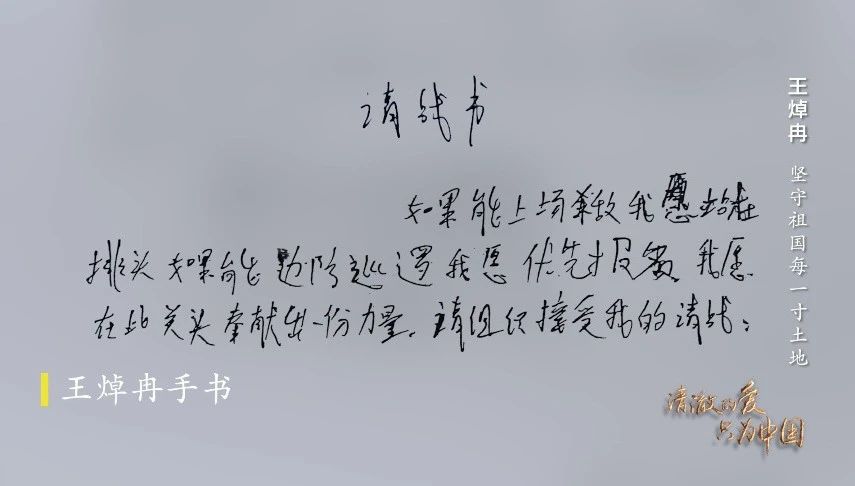 请战书
如果能上场杀敌我愿站在
排头如果能边防巡逻我愿优先报名,我愿
在此关头奉献出一份力量,请组织接受我的请战:
王焯冉手书
王焯冉 坚守祖国每一寸土地
清澈的爱
只为中国